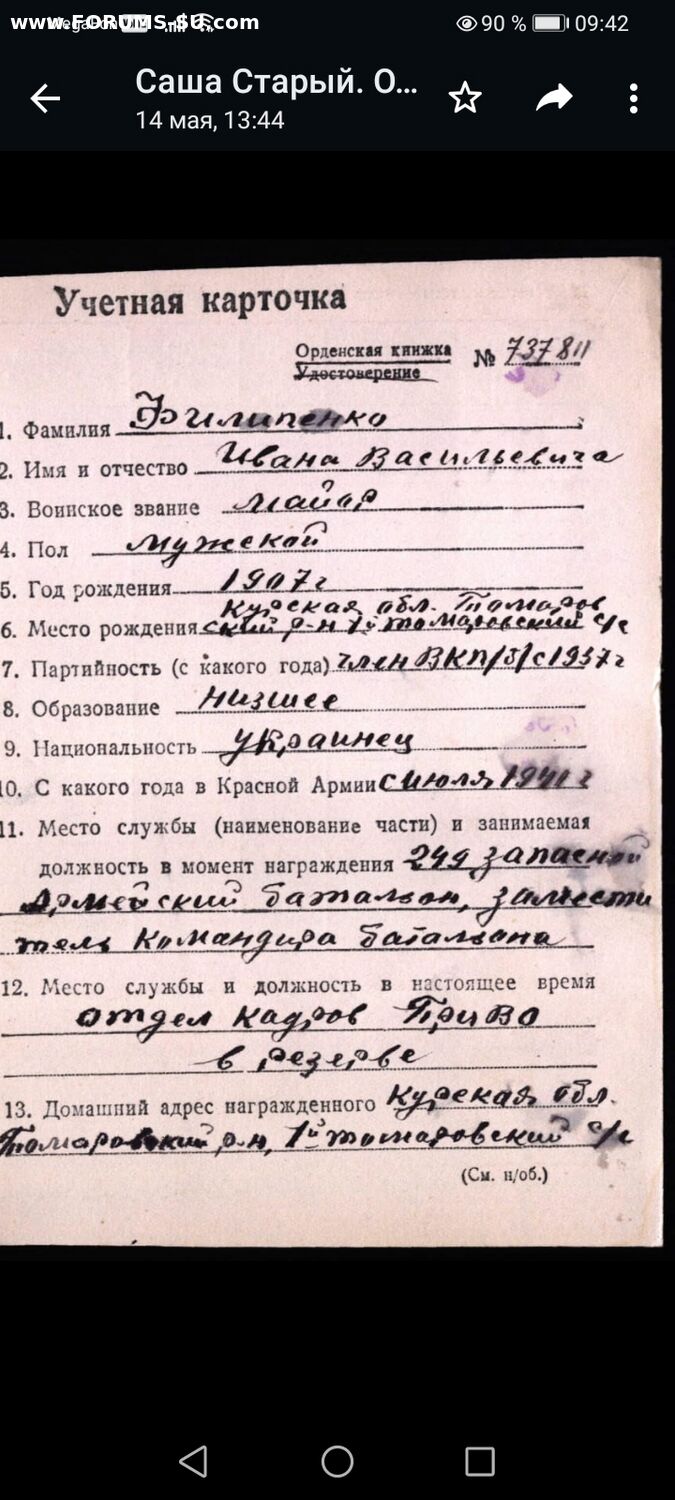 www.FORUMS-SU.com
90 % 09:42
Саша Старый. О...
14 мая, 13:44
Учетная карточка
Орденская книжка
Удостоверение
№ 737811
1. Фамилия Филипенко
2. Имя и отчество Ивана Васильевича
3. Воинское звание майор
4. Пол мужской
5. Год рождения 1907 г
Курская обл. Томаров
6. Место рождения ский р-н 1й томаровский с/с
7. Партийность (с какого года) член ВКП/б/ с 1937 г
8. Образование низшее
9. Национальность украинец
10. С какого года в Красной Армии с июля 1941 г
11. Место службы (наименование части) и занимаемая
должность в момент награждения 249 запасной
Армейский баталион, замести
тель командира баталиона
12. Место службы и должность в настоящее время
отдел кадров ПриВО
в резерве
13. Домашний адрес награжденного Курская обл.
Томаровский р-н, 1й томаровский с/с
(См. н/об.)